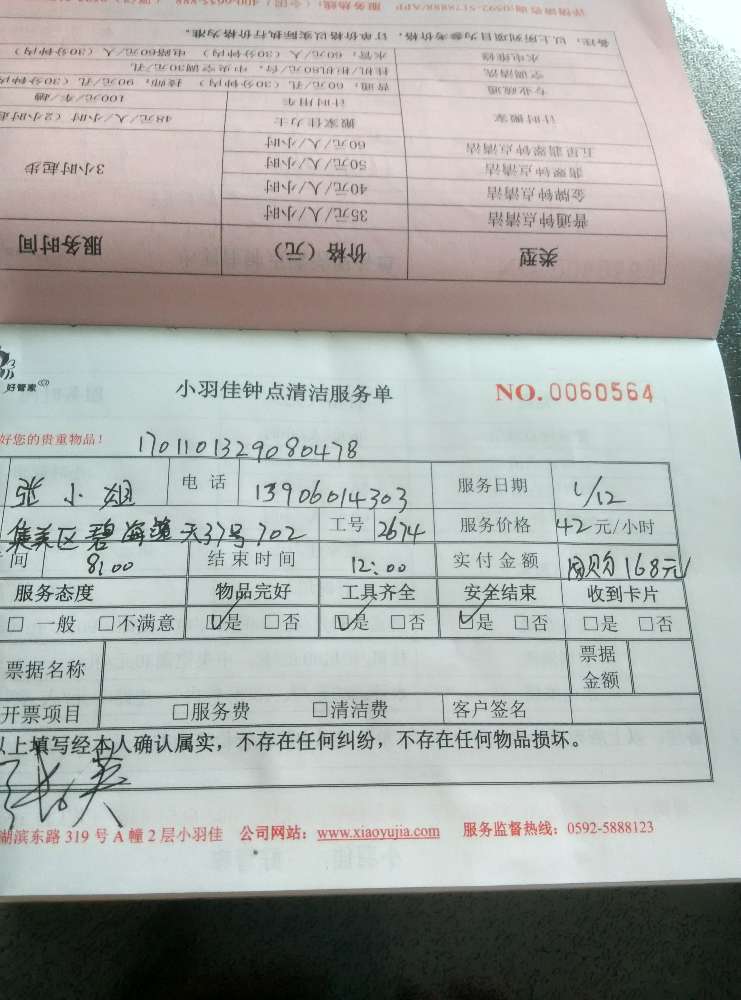 备注：以上所列项目为参考价格，订单价格以实际执行为准。
水电维修 水管，60元/人（30分钟内） 电路60元/人（30分钟内）
空调清洗 挂机/柜机180元/台，中央空调30元/孔
专业疏通 普通，60元/孔（30分钟内） 技师，90元/孔（30分钟内
计时搬家 计时用车 100元/车/趟
搬家佳力士 48元/人/小时（2小时起
五星翡翠钟点清洁 60元/人/小时
翡翠钟点清洁 50元/人/小时
金牌钟点清洁 40元/人/小时
普通钟点清洁 35元/人/小时
3小时起步
类型 价格（元） 服务时间
好管家
小羽佳钟点清洁服务单 NO.0060564
好您的贵重物品！ 1701101329080478
张小姐 电话 13906014303 服务日期 1/12
集美区碧海蓝天37号702 工号 2674 服务价格 42元/小时
间 8:00 结束时间 12:00 实付金额 团购168元
服务态度 物品完好 工具齐全 安全结束 收到卡片
□一般 □不满意 ☑是 □否 ☑是 □否 ☑是 □否 □是 □否
票据名称 票据金额
开票项目 □服务费 □清洁费 客户签名
以上填写经本人确认属实，不存在任何纠纷，不存在任何物品损坏。
湖滨东路319号A幢2层小羽佳 公司网站：www.xiaoyujia.com 服务监督热线：0592-5888123